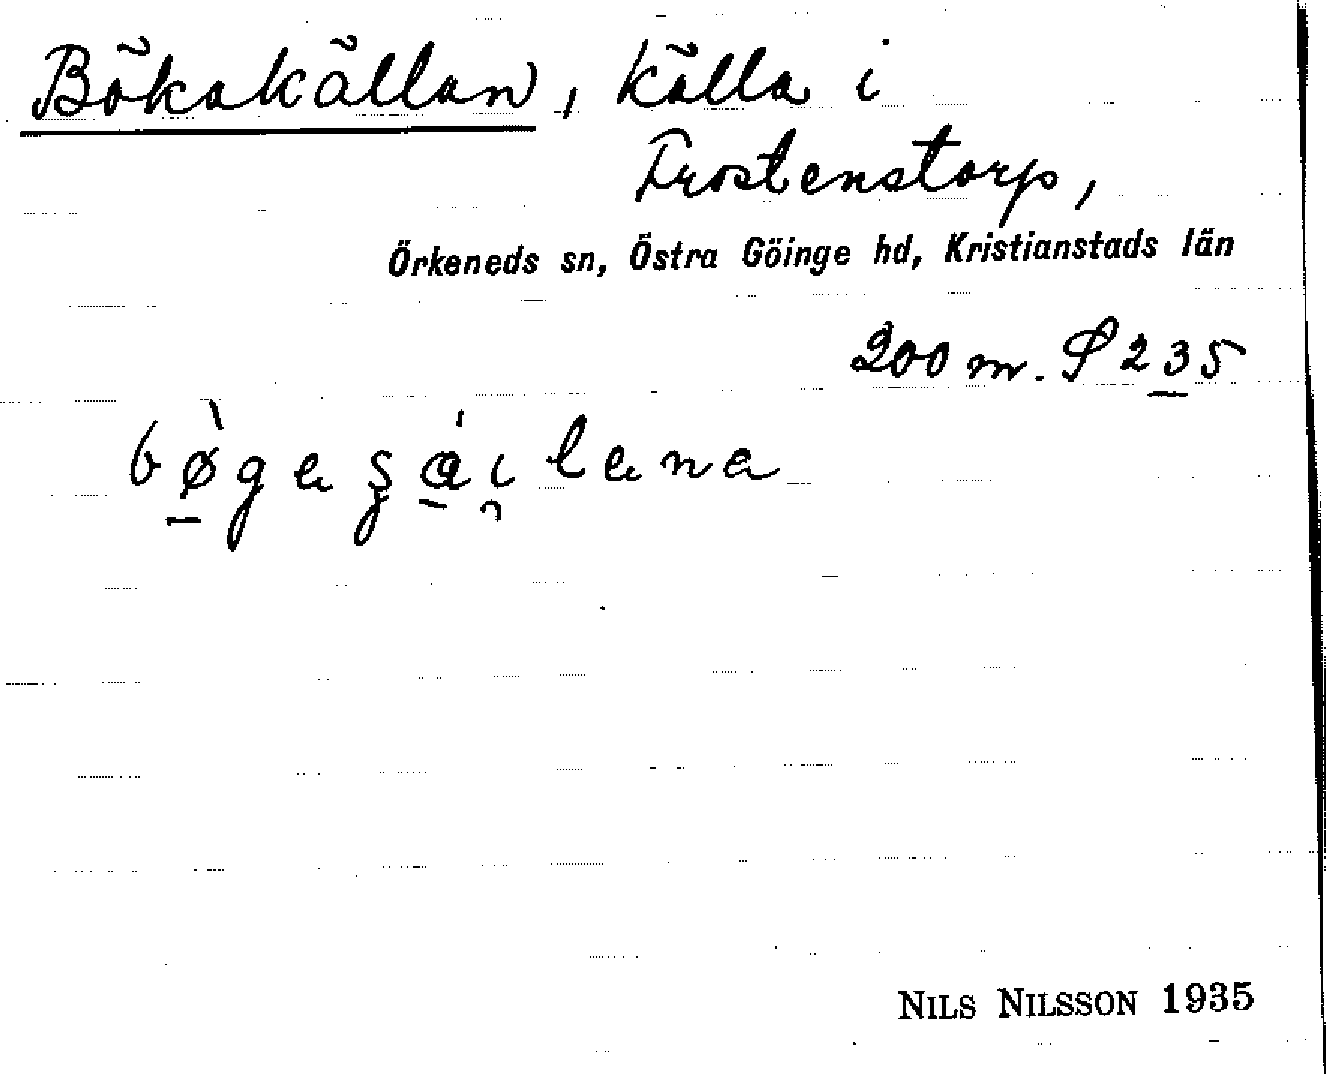 Bökakällan, källa i
Trostenstorp,
Örkeneds sn, Östra Göinge hd, Kristianstads län
200 m. S 235
NILS NILSSON 1935